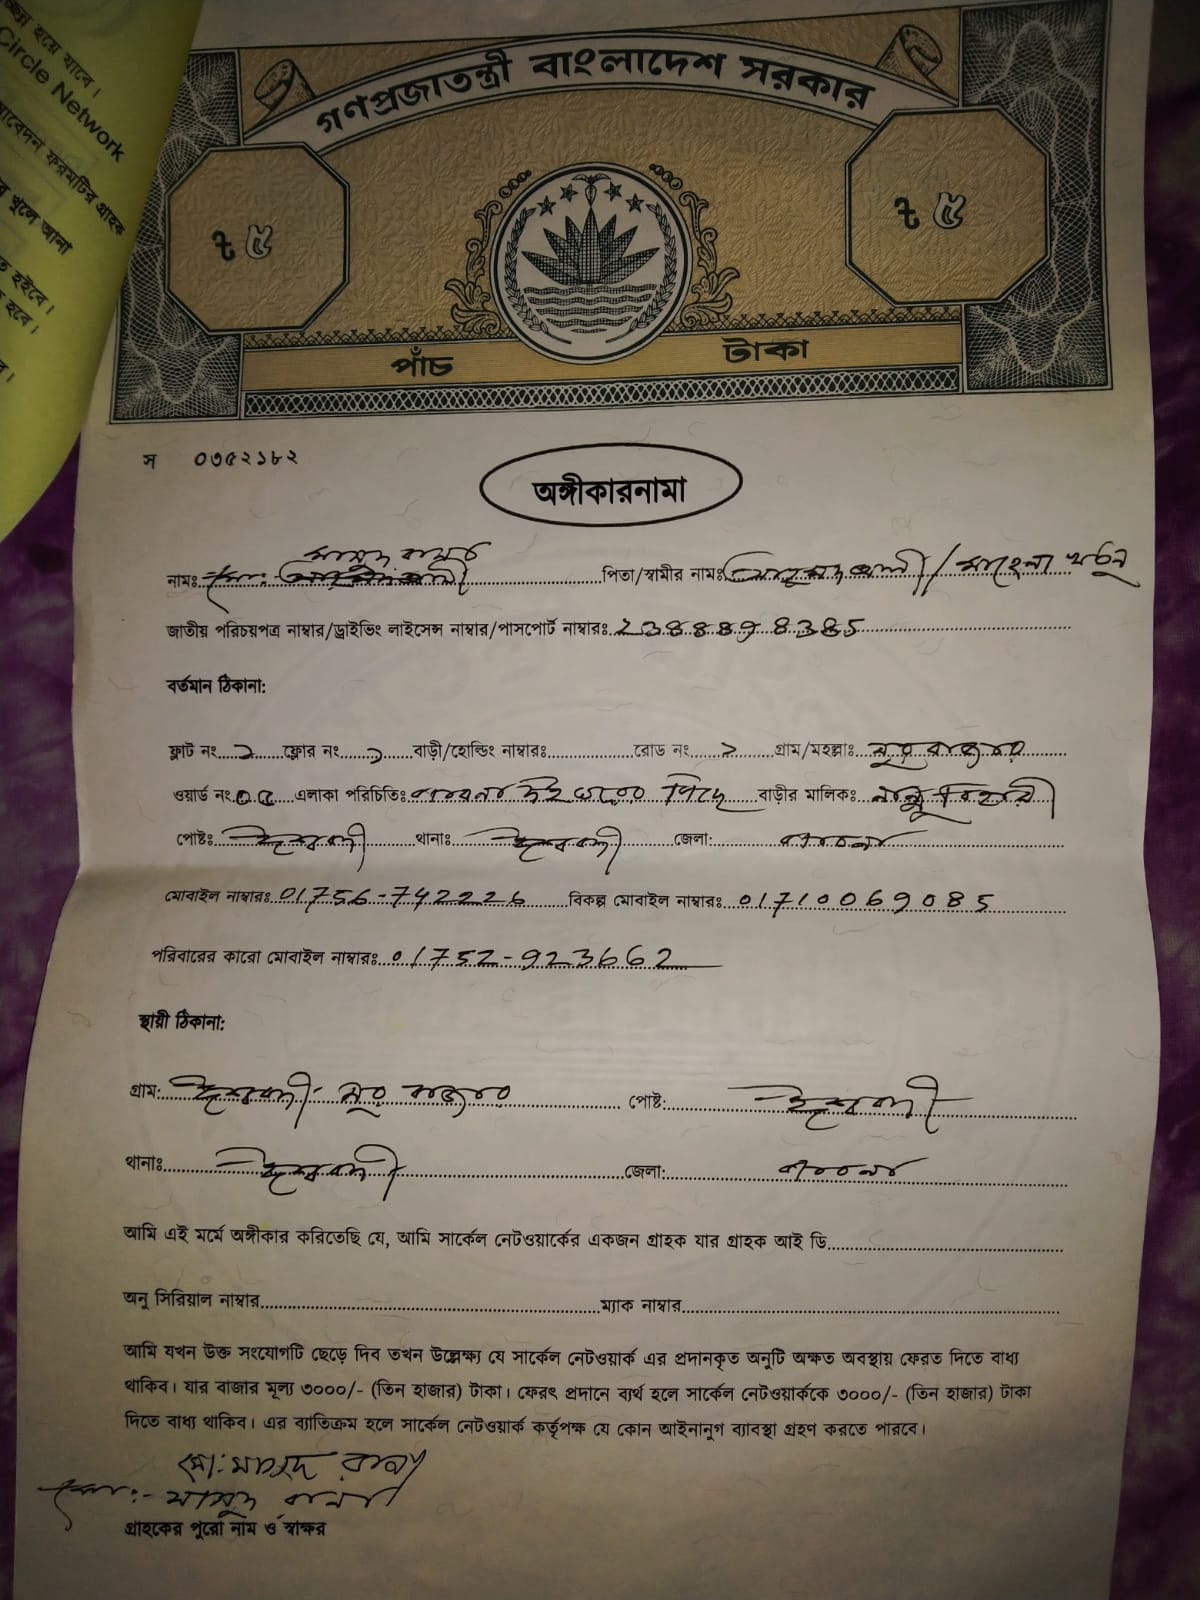 চ্ছিন্ন হয়ে যাবে।
Circle Network
আবেদন ফরমটির গ্রাহক
খুলে আনা
হইবে।
হবে।
গণপ্রজাতন্ত্রী বাংলাদেশ সরকার
৳ ৫ ৳ ৫
পাঁচ টাকা
স ০৩৫২১৮২
অঙ্গীকারনামা
মাসুদ রানা
নামঃ মো: পিতা/স্বামীর নামঃ / খাতুন
জাতীয় পরিচয়পত্র নাম্বার/ড্রাইভিং লাইসেন্স নাম্বার/পাসপোর্ট নাম্বারঃ
বর্তমান ঠিকানা:
ফ্লাট নং ফ্লোর নং বাড়ী/হোল্ডিং নাম্বারঃ রোড নং গ্রাম/মহল্লাঃ নূর বাজার
ওয়ার্ড নং ০৫ এলাকা পরিচিতিঃ পিছে বাড়ীর মালিকঃ
পোষ্টঃ ঈশ্বরদী থানাঃ ঈশ্বরদী জেলা: পাবনা
মোবাইল নাম্বারঃ 01756-742226 বিকল্প মোবাইল নাম্বারঃ 01710069085
পরিবারের কারো মোবাইল নাম্বারঃ 01752-923662
স্থায়ী ঠিকানা:
গ্রাম: ঈশ্বরদী নূর বাজার পোষ্ট: ঈশ্বরদী
থানাঃ ঈশ্বরদী জেলা: পাবনা
আমি এই মর্মে অঙ্গীকার করিতেছি যে, আমি সার্কেল নেটওয়ার্কের একজন গ্রাহক যার গ্রাহক আই ডি
অনু সিরিয়াল নাম্বার ম্যাক নাম্বার
আমি যখন উক্ত সংযোগটি ছেড়ে দিব তখন উল্লেক্ষ্য যে সার্কেল নেটওয়ার্ক এর প্রদানকৃত অনুটি অক্ষত অবস্থায় ফেরত দিতে বাধ্য
থাকিব। যার বাজার মূল্য ৩০০০/- (তিন হাজার) টাকা। ফেরৎ প্রদানে ব্যর্থ হলে সার্কেল নেটওয়ার্ককে ৩০০০/- (তিন হাজার) টাকা
দিতে বাধ্য থাকিব। এর ব্যাতিক্রম হলে সার্কেল নেটওয়ার্ক কর্তৃপক্ষ যে কোন আইনানুগ ব্যাবস্থা গ্রহণ করতে পারবে।
মো: মাসুদ রানা
মো:- মাসুদ রানা
গ্রাহকের পুরো নাম ও স্বাক্ষর